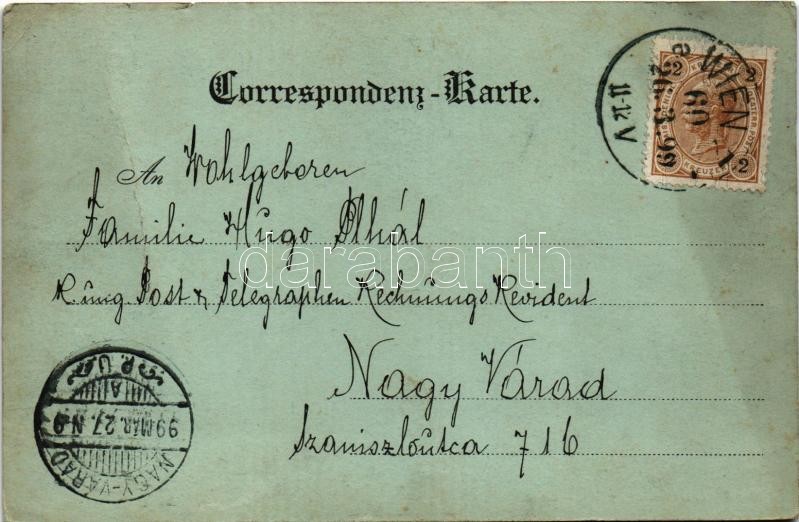 Correspondenz-Karte.
An Wohlgeboren
Familie Hugo
K. ung. Post & Telegraphen Rechnungs Revident
Nagy Várad
Szaniszloutca 716
WIEN 1
60
26.3.99
11-12 V
2 2
2
KREUZER
99 MÁR. 27. N
NAGY-VÁRAD
darabanth